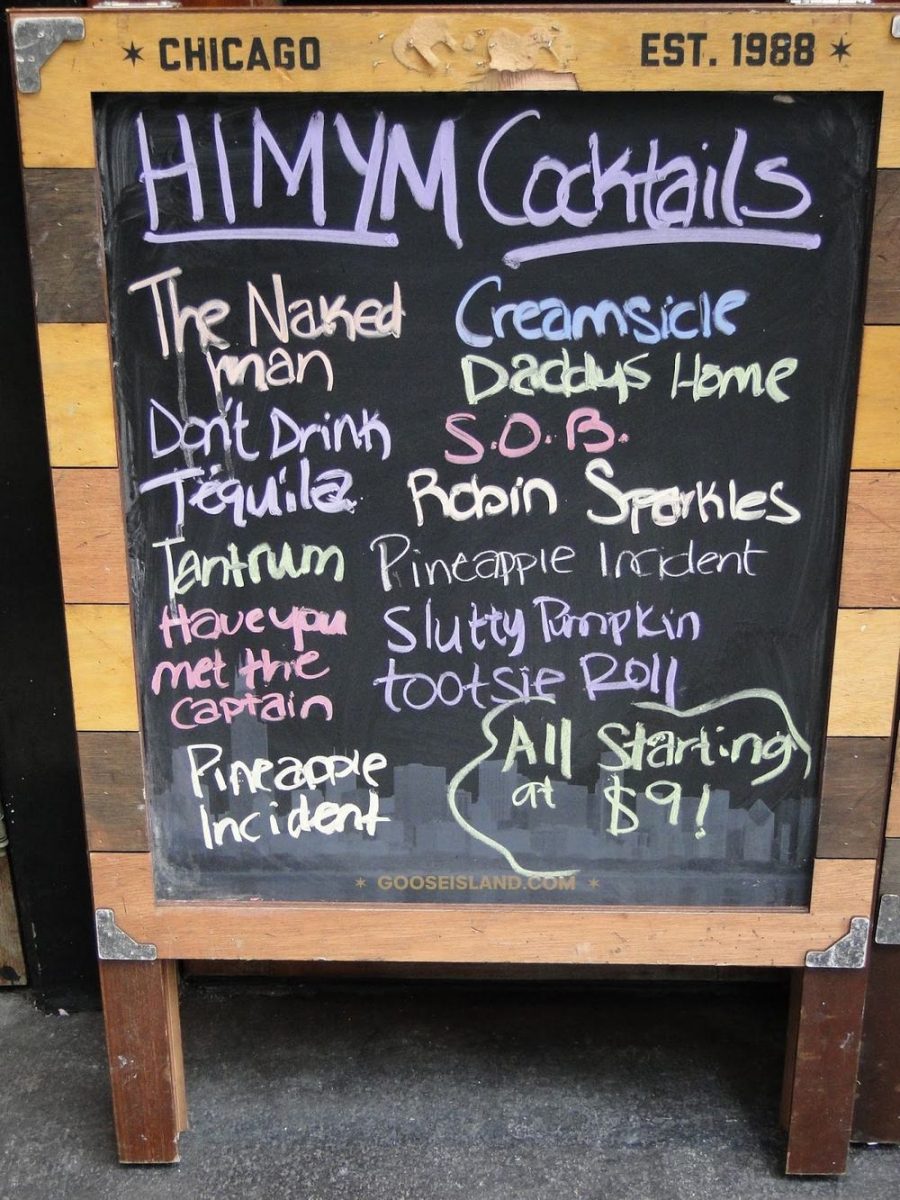 CHICAGO EST. 1988
HIMYM Cocktails
The Naked
man
Don't Drink
Tequila
Tantrum
Have you
met the
captain
Pineapple
Incident
Creamsicle
Daddys Home
S.O.B.
Robin Sparkles
Pineapple Incident
Slutty Pumpkin
tootsie Roll
All Starting
at $9!
GOOSEISLAND.COM